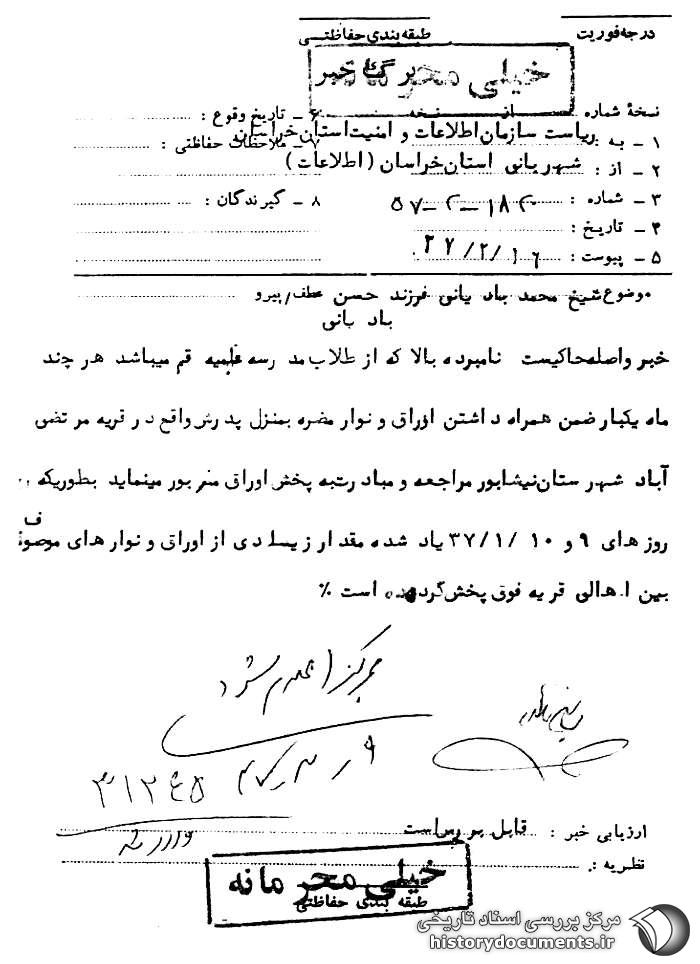 درجه فوریت
طبقه بندی حفاظتی
خیلی محرمانه
برگ خبر
نسخهٔ شماره از نسخه
۱ ـ به : ریاست سازمان اطلاعات و امنیت استان خراسان
۲ ـ از : شهربانی استان خراسان (اطلاعات)
۳ ـ شماره : ۱۸۲-۲-۵۷
۴ ـ تاریخ :
۵ ـ پیوست : ۳۷/۲/۱۶
۶ ـ تاریخ وقوع :
۷ ـ ملاحظات حفاظتی :
۸ ـ گیرندگان :
موضوع شیخ محمد باد یانی فرزند حسن عطف/پیرو
باد بانی
خبر واصله حاکیست نامبرده بالا که از طلاب مدرسه علمیه قم میباشد هر چند
ماه یکبار ضمن همراه داشتن اوراق و نوار مضره بمنزل پدرش واقع در قریه مرتضی
آباد شهرستان نیشابور مراجعه و مبادرت به پخش اوراق مزبور مینماید بطوریکه
روز های ۹ و ۱۰ /۳۷/۱ یاد شده مقدار زیادی از اوراق و نوار های موصوف
بین اهالی قریه فوق پخش گردیده است ٪
بمرکز اعلام شود
۳۱۲۴۵
ارزیابی خبر : قابل بررسی است
نظریه :
خیلی محرمانه
طبقه بندی حفاظتی
مرکز بررسی اسناد تاریخی
historydocuments.ir